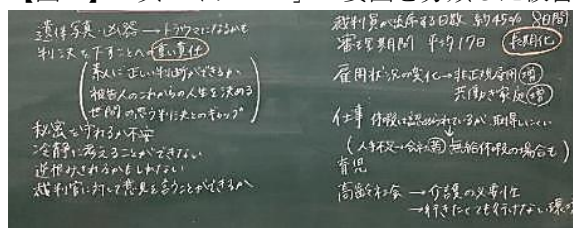 遺体写真・凶器 → トラウマになるかも
判決を下すことへの重い責任
素人に正しい判断ができるか
被告人のこれからの人生を決める
世間の思う判決とのギャップ
秘密を守れるか不安
冷静に考えることができない
逆恨みされるかもしれない
裁判官に対して意見を言うことができるか
裁判員が出席する日数 約45% 8日間
審理期間 平均17日 長期化
雇用状況の変化→非正規雇用増
共働き家庭増
仕事 休暇は認められているが取得しにくい
(人手不足→会社 無給休暇の場合も)
育児
高齢社会→介護の必要性
→行きたくても行けない環